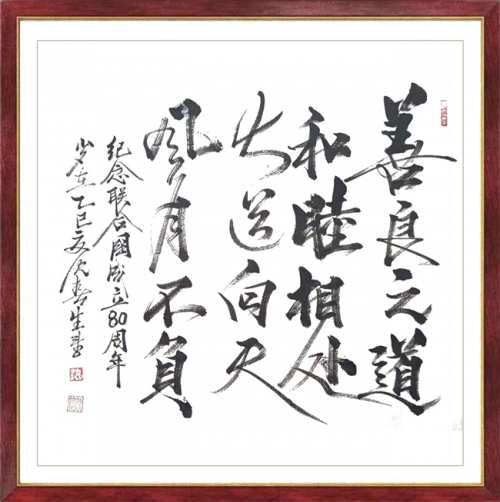 善良之道
和睦相处
向天
风月不负
纪念联合国成立80周年
岁在乙巳夏